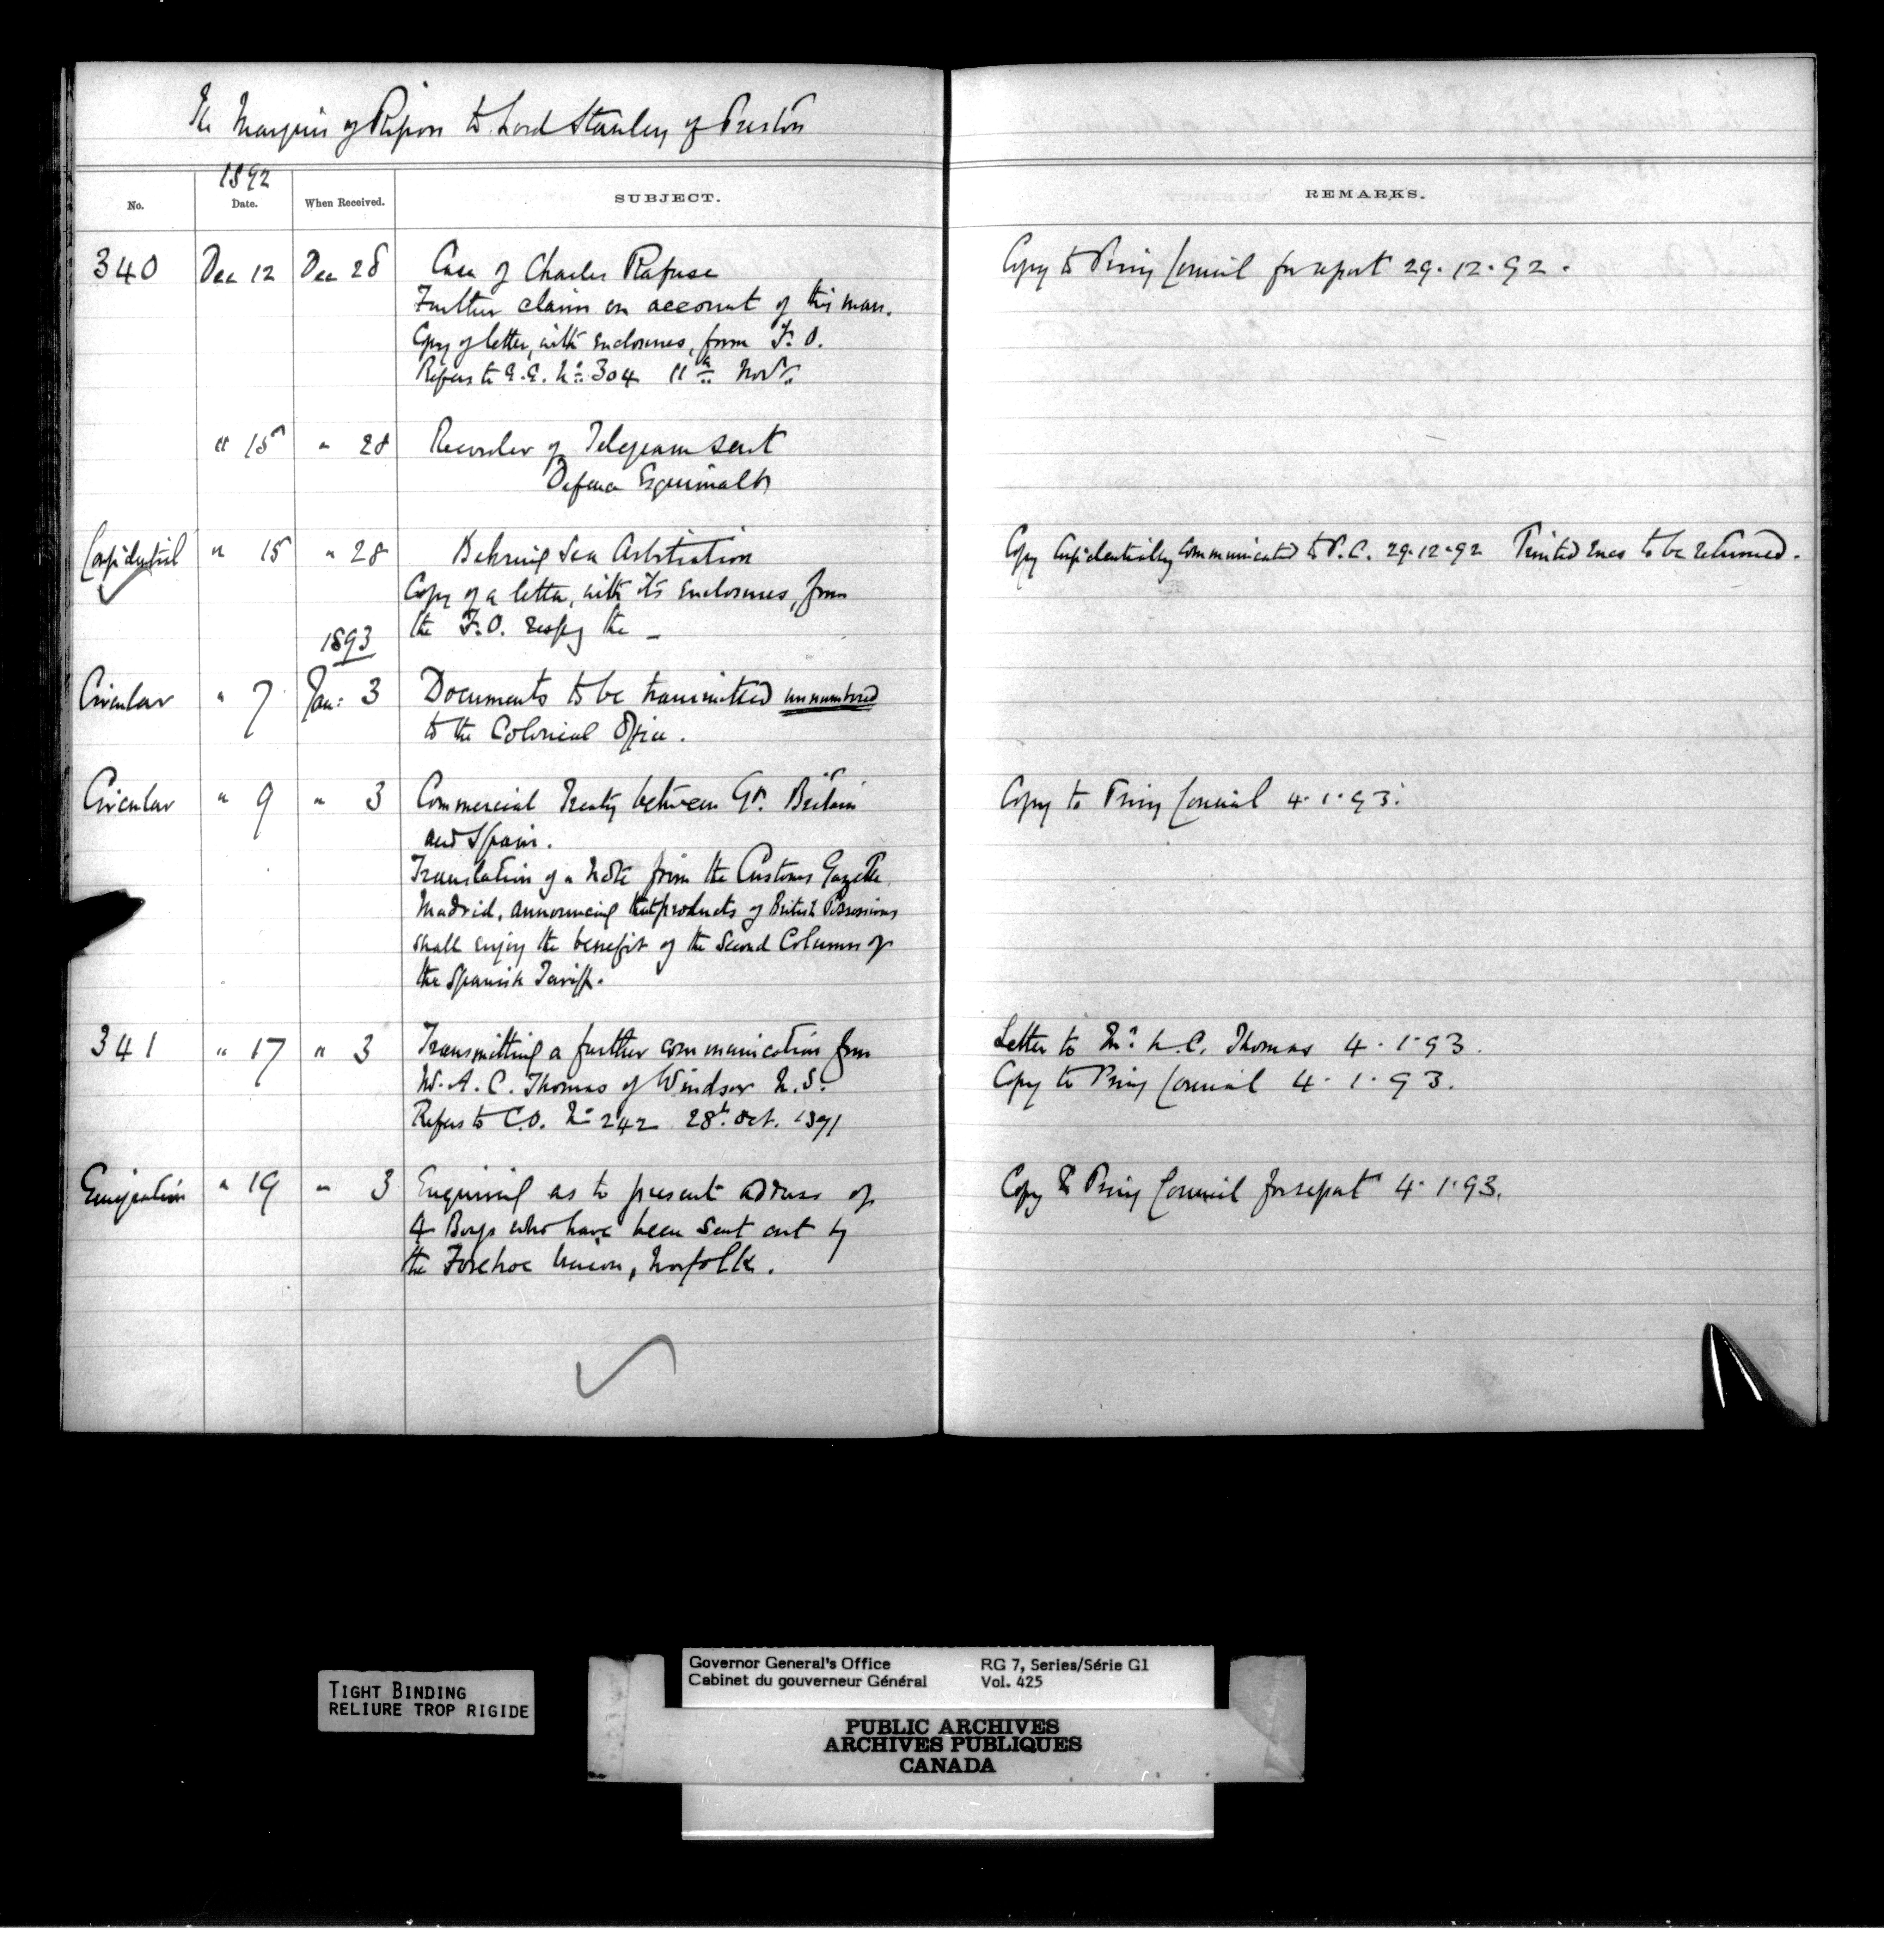 The Marquis of Ripon to Lord Stanley of Preston
1892
No. Date. When Received. SUBJECT. REMARKS.
340 Dec 12 Dec 28 Case of Charles Rafuse Copy to Privy Council for report 29.12.92.
Further claim on account of this man.
Copy of letter, with enclosures, from F.O.
Refers to G.G. No. 304 11th Novr.
" 15 " 28 Recorder of Telegram sent
Defence Esquimalt
Confidential " 15 " 28 Behring Sea Arbitration Copy confidentially communicated to P.C. 29.12.92 Printed encs to be returned.
Copy of a letter, with its enclosures, from
the F.O. respg the _
1893
Circular " 7 Jan: 3 Documents to be transmitted unnumbered
to the Colonial Office.
Circular " 9 " 3 Commercial Treaty between Gt. Britain Copy to Privy Council 4.1.93.
and Spain.
Translation of a Note from the Customs Gazette
Madrid, announcing that products of British Possessions
shall enjoy the benefit of the Second Column of
the Spanish Tariff.
341 " 17 " 3 Transmitting a further communication from Letter to Mr. Thomas 4.1.93.
A. C. Thomas of Windsor N.S. Copy to Privy Council 4.1.93.
Refers to C.O. No 242 28th Oct. 1891
Emigration " 19 " 3 Enquiring as to present address of Copy to Privy Council for report 4.1.93.
4 Boys who have been sent out by
the Forehoe Union, Norfolk.
TIGHT BINDING
RELIURE TROP RIGIDE
Governor General's Office RG 7, Series/Série G1
Cabinet du gouverneur Général Vol. 425
PUBLIC ARCHIVES
ARCHIVES PUBLIQUES
CANADA